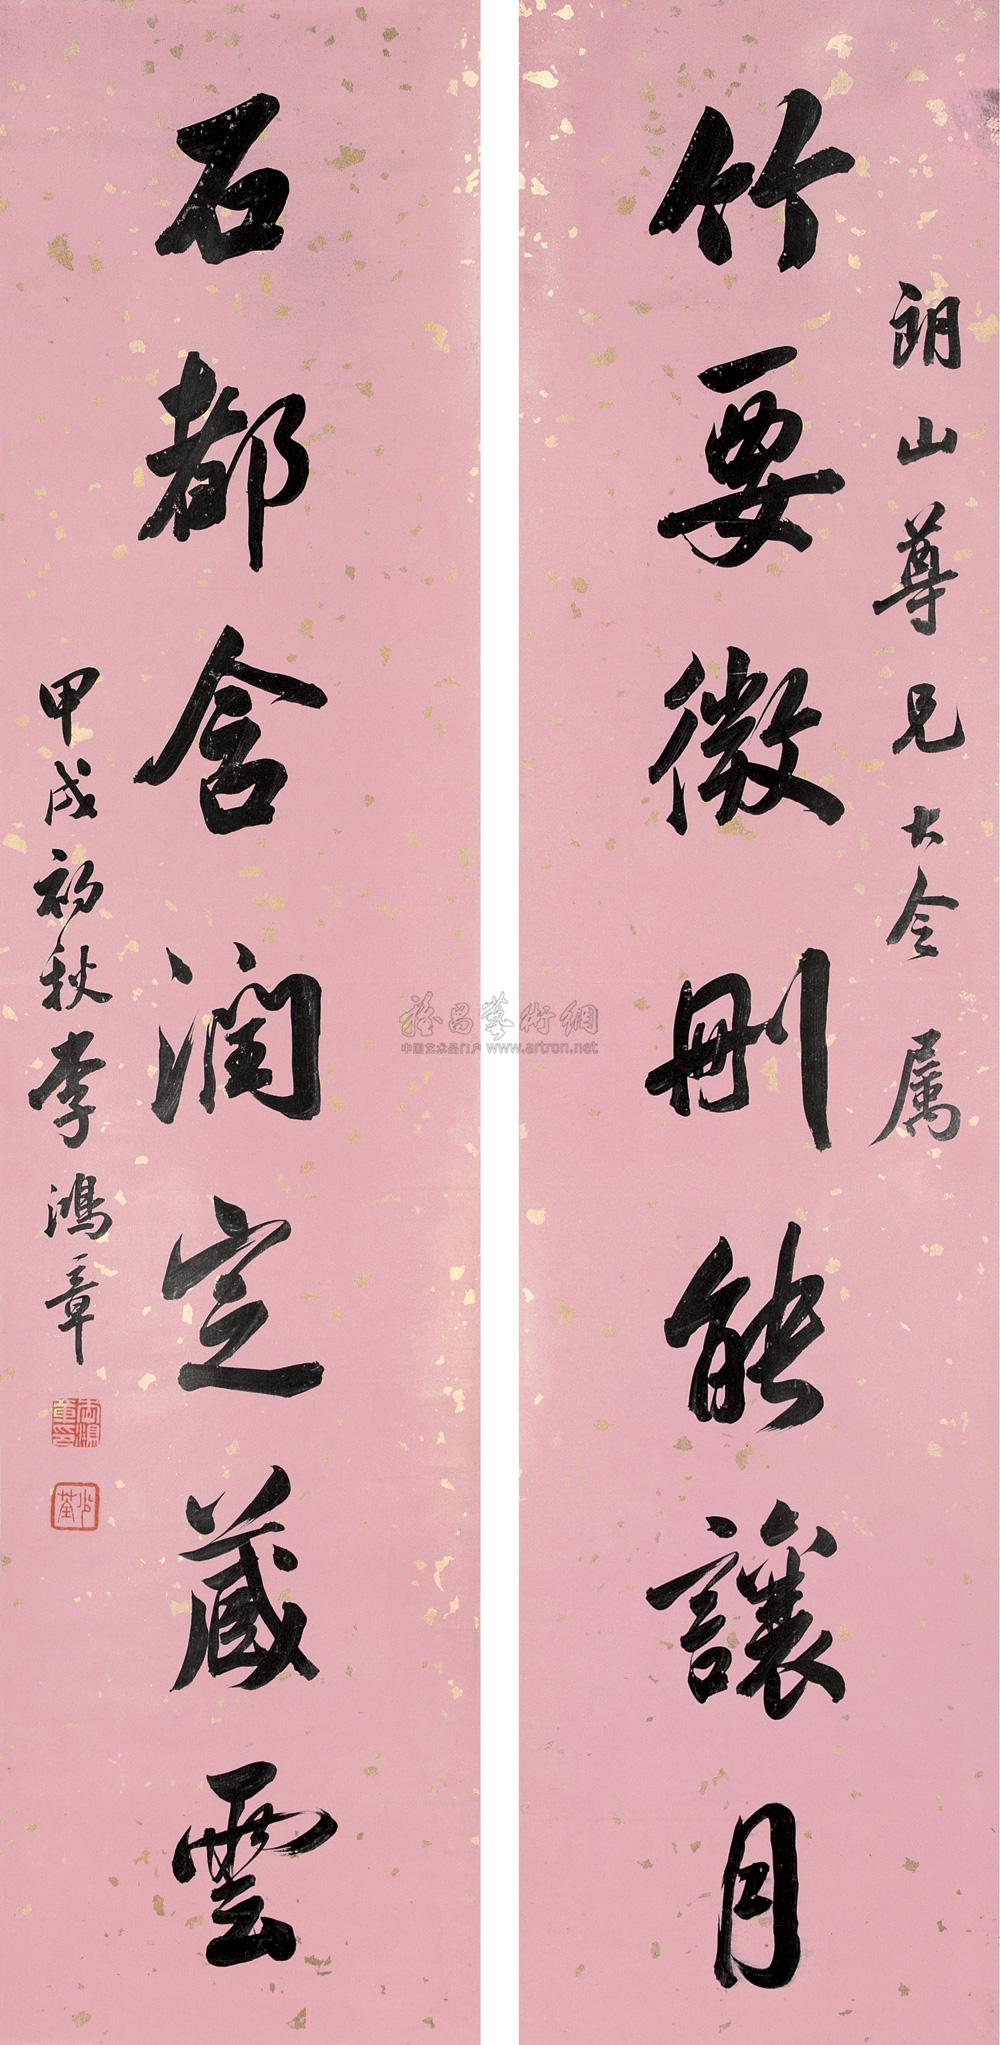 朗山尊兄大令属
竹要微刪能讓月
石都含潤定藏雲
甲戌初秋李鴻章
少荃
雅昌藝術網
中国艺术品门户 www.artron.net